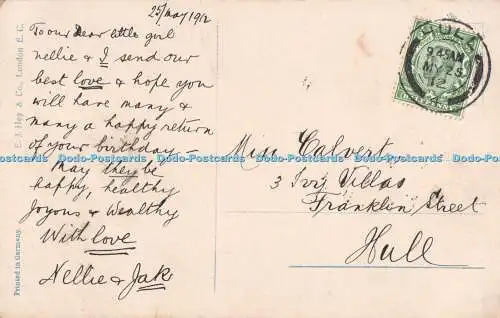 25/May 1912
To our Dear little girl
Nellie & I send our
best love & hope you
will have many &
many a happy return
of your birthday –
May they be
happy, healthy
Joyous & Wealthy
With love
Nellie & Jak
Miss Calvert
3 Ivy Villas
Franklin Street
Hull
HULL
9.45AM
MY 25
12
E. J. Hey & Co., London E. C.
Printed in Germany.
Dodo-Postcards Dodo-Postcards Dodo-Postcards Dodo-Postcards Dodo-Postcards Dodo-Postcards